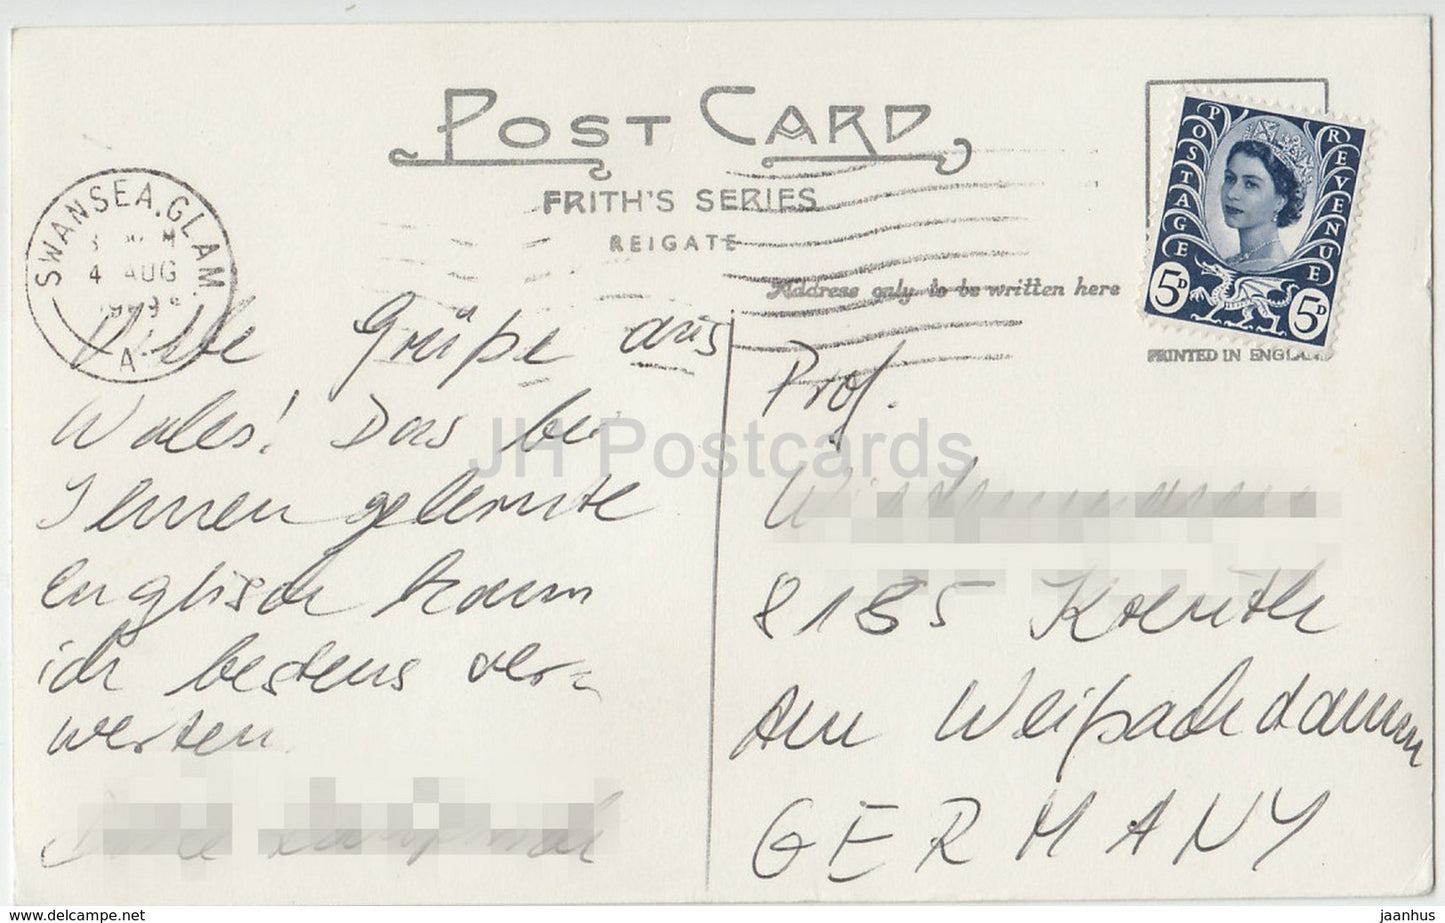 POST CARD
FRITH'S SERIES
REIGATE
Address only to be written here
PRINTED IN ENGLAND
POSTAGE REVENUE
5D 5D
SWANSEA. GLAM.
4 AUG
A
Viele Grüße aus
Wales! Das bei
Ihnen gelernte
Englisch kann
ich bestens ver-
werten.
Prof.
8185 Kreuth
Am Weißachdamm
GERMANY
JH Postcards
www.delcampe.net
jaanhus